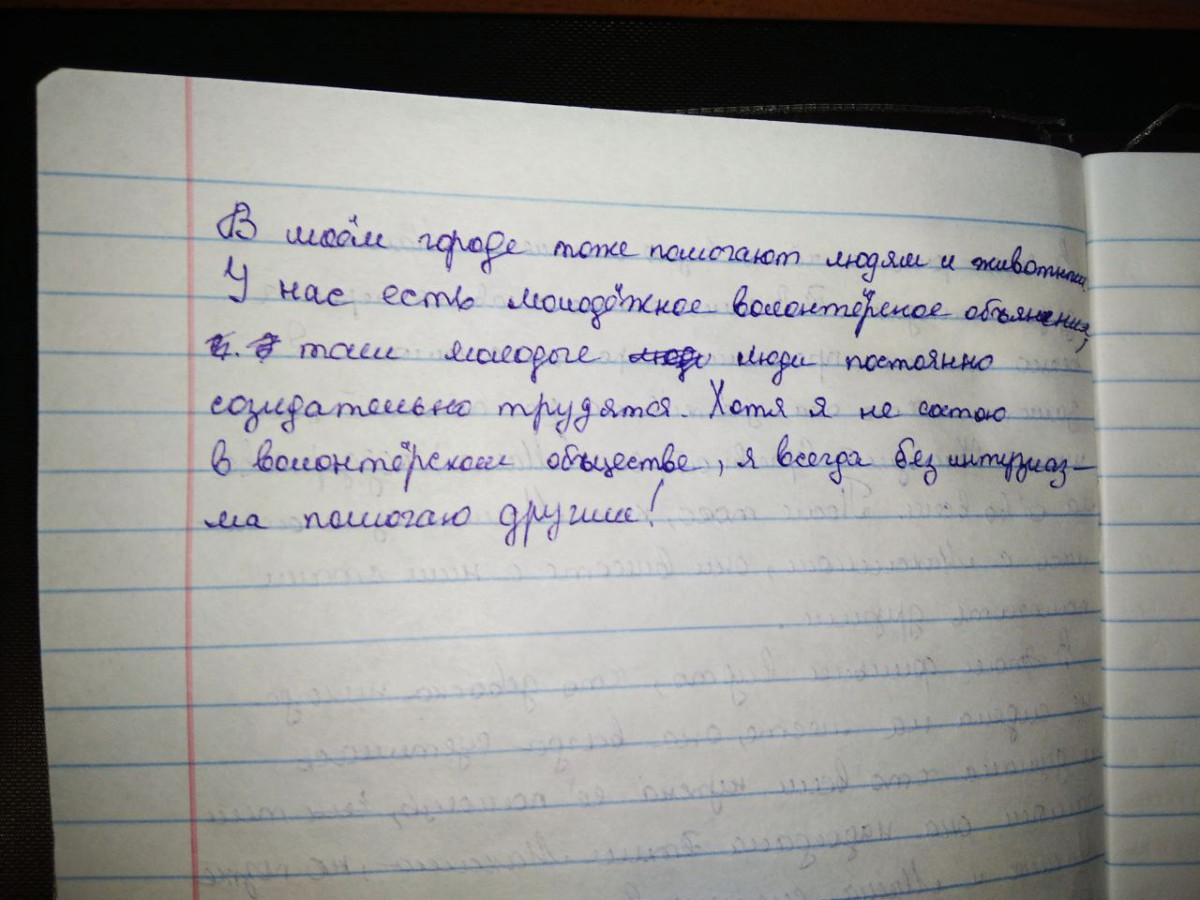 В моём городе тоже помогают людям и животным.
У нас есть молодёжное волонтёрское объянения,
там молодые люди постоянно
созидательно трудятся. Хотя я не сотою
в волонтёрском объществе, я всегда без интузиаз-
ма помогаю другим!